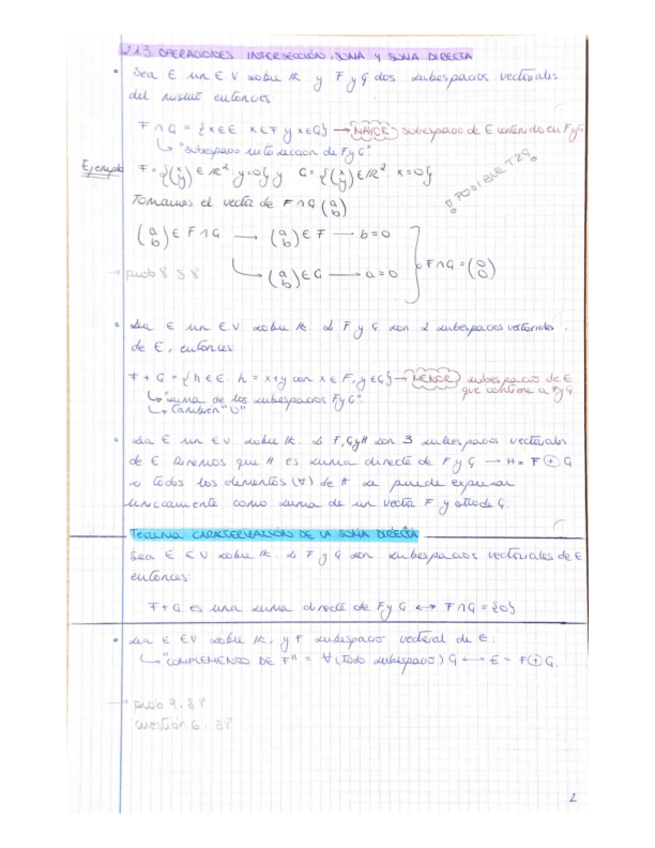 2.1.3 OPERACIONES INTERSECCIÓN, SUMA Y SUMA DIRECTA
• Sea E un E.V sobre K y F y G dos subespacios vectoriales
del mismo entonces:
F∩G = {x∈E x∈F y x∈G} → MAYOR subespacio de E contenido en F y G
↳ "subespacio intersección de F y G".
Ejemplo F = {(x y) ∈ R² y=0} y G = {(x y) ∈ R² x=0}
¡POSIBLE T2!
Tomamos el vector de F∩G (a b)
(a b) ∈ F∩G → (a b) ∈ F → b=0
→ prob 8 88 ↳ (a b) ∈ G → a=0 F∩G = (0 0)
• Sea E un E.V sobre K. Si F y G son 2 subespacios vectoriales
de E, entonces:
F + G = {h∈E. h = x+y con x∈F, y∈G} → MENOR subespacio de E
que contiene a F y G
↳ "suma de los subespacios F y G".
↳ también "U"
• Sea E un EV sobre K. Si F, G y H son 3 subespacios vectoriales
de E. Diremos que H es suma directa de F y G → H = F ⊕ G
si todos los elementos (∀) de H se puede expresar
únicamente como suma de un vector F y otro de G.
Teorema CARACTERIZACIÓN DE LA SUMA DIRECTA
Sea E EV sobre K. Si F y G son subespacios vectoriales de E
entonces:
F+G es una suma directa de F y G ↔ F∩G = {0}
• Sea E EV sobre K, y F subespacio vectorial de E:
↳ "COMPLEMENTO DE F" = ∀ (todo subespacio) G ↔ E = F⊕G.
→ prob 9. 88
cuestión 6. 88
2